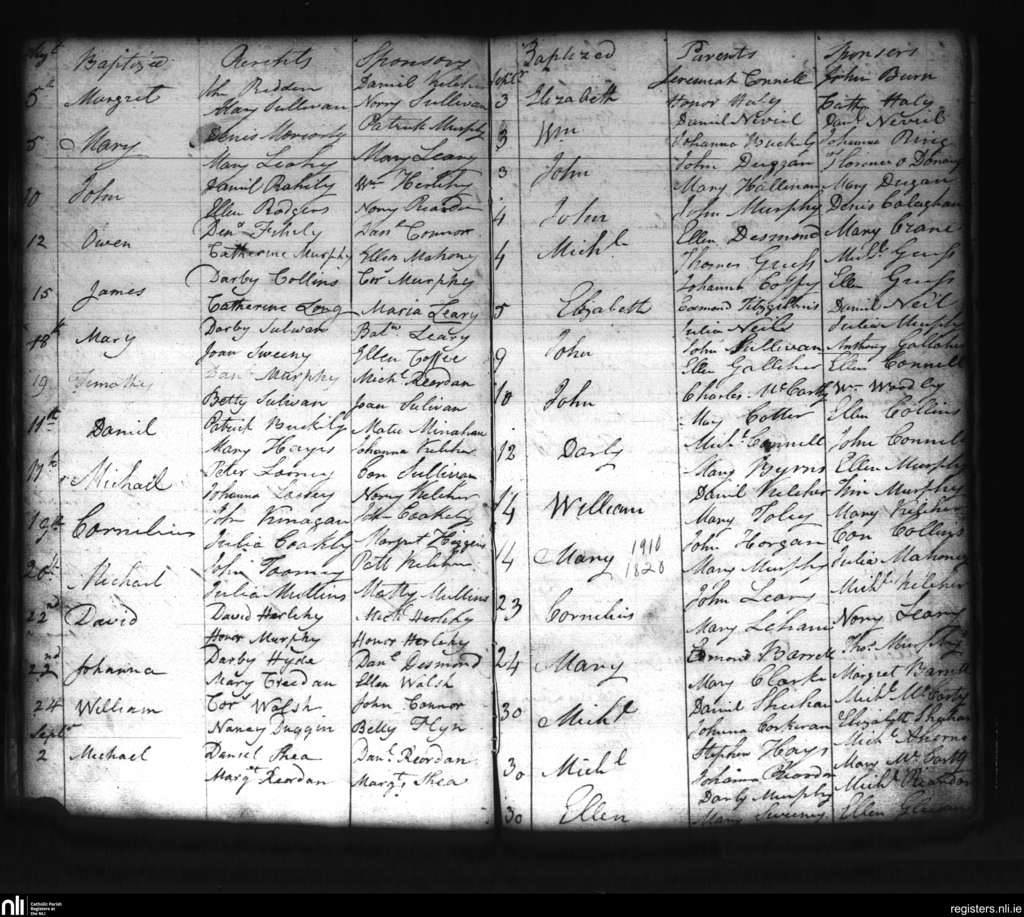 Augt Baptized Parents Sponsors
5th Margret Jn Riddin Daniel Kelcher
Mary Sullivan Norry Sullivan
5 Mary Denis Moriordy Patrick Murphy
Mary Leahy Mary Leary
10 John Daniel Rahily Wm Herlihy
Ellen Rodgers Norry Reardon
12 Owen Dens Fihily Danl Connor
Catherine Murphy Ellen Mahony
15 James Darby Collins Cors Murphy
Catherine Long Maria Leary
18th Mary Darby Sulivan Batw Leary
Joan Sweeny Ellen Coffee
19 Timothy Danl Murphy Michl Reordan
Betty Sulivan Joan Sulivan
11th Daniel Patrick Buckily Matw Minahan
Mary Hayes Johanna Kelcher
17th Michael Peter Looney Con Sullivan
Johanna Looney Norry Kelcher
19th Cornelius John Finagan John Coakely
Julia Coakly Margret Hoggins
20th Michael John Toomey Patt Kelcher
Julia Mullins Matty Mullins
22nd David David Herlihy Mich Herlihy
Honor Murphy Honor Herlihy
22nd Johanna Darby Hyda Danl Desmond
Mary Creedan Ellen Walsh
24 William Cors Walsh John Connor
Septr Nancy Duggin Betty Flyn
2 Michael Daniel Shea Danl Reordan
Margt Reordan Margt Shea
Septr Baptized Parents Sponsers
3 Elizabeth Jeremiah Connell John Burn
Honor Haly Cath Haly
3 Wm Daniel Nevil Danl Nevil
Johanna Buckely Johanna Ring
3 John John Duggan Florence o Donovan
Mary Hallinan Mary Dugan
4 John John Murphy Denis Calaghan
Ellen Desmond Mary Crane
4 Michl Thomas Guess Michl Guess
Johanna Coffy Ellen Guess
5 Elizabeth Edmond Fitzgibbins Daniel Neil
Julia Neile Julia Murphy
9 John John Sullivan Anthony Gallaher
Ellen Galliher Ellen Connell
10 John Charles McCarthy Wm Woodley
Mary Cotter Ellen Collins
12 Darby Michl Connell John Connell
Mary Byrns Ellen Murphy
14 William Daniel Kelcher Tim Murphy
Mary Foley Mary Kelcher
14 Mary 1910 John Horgan Con Collins
1820 Mary Murphy Julia Mahoney
23 Cornelius John Leary Michl Kelcher
Mary Lehane Norry Leary
24 Mary Edmond Barrett Thos Murphy
Mary Clarke Margret Barrett
30 Michl Daniel Sheehan Michl McCarty
Johanna Corkeran Elizabeth Sheehan
30 Michl Stephen Hays Michl Aherne
Johanna Reardon Mary McCarthy
30 Ellen Darby Murphy Michl Reardan
Mary Sweeney Ellen
nli Catholic Parish Registers at the NLI
registers.nli.ie